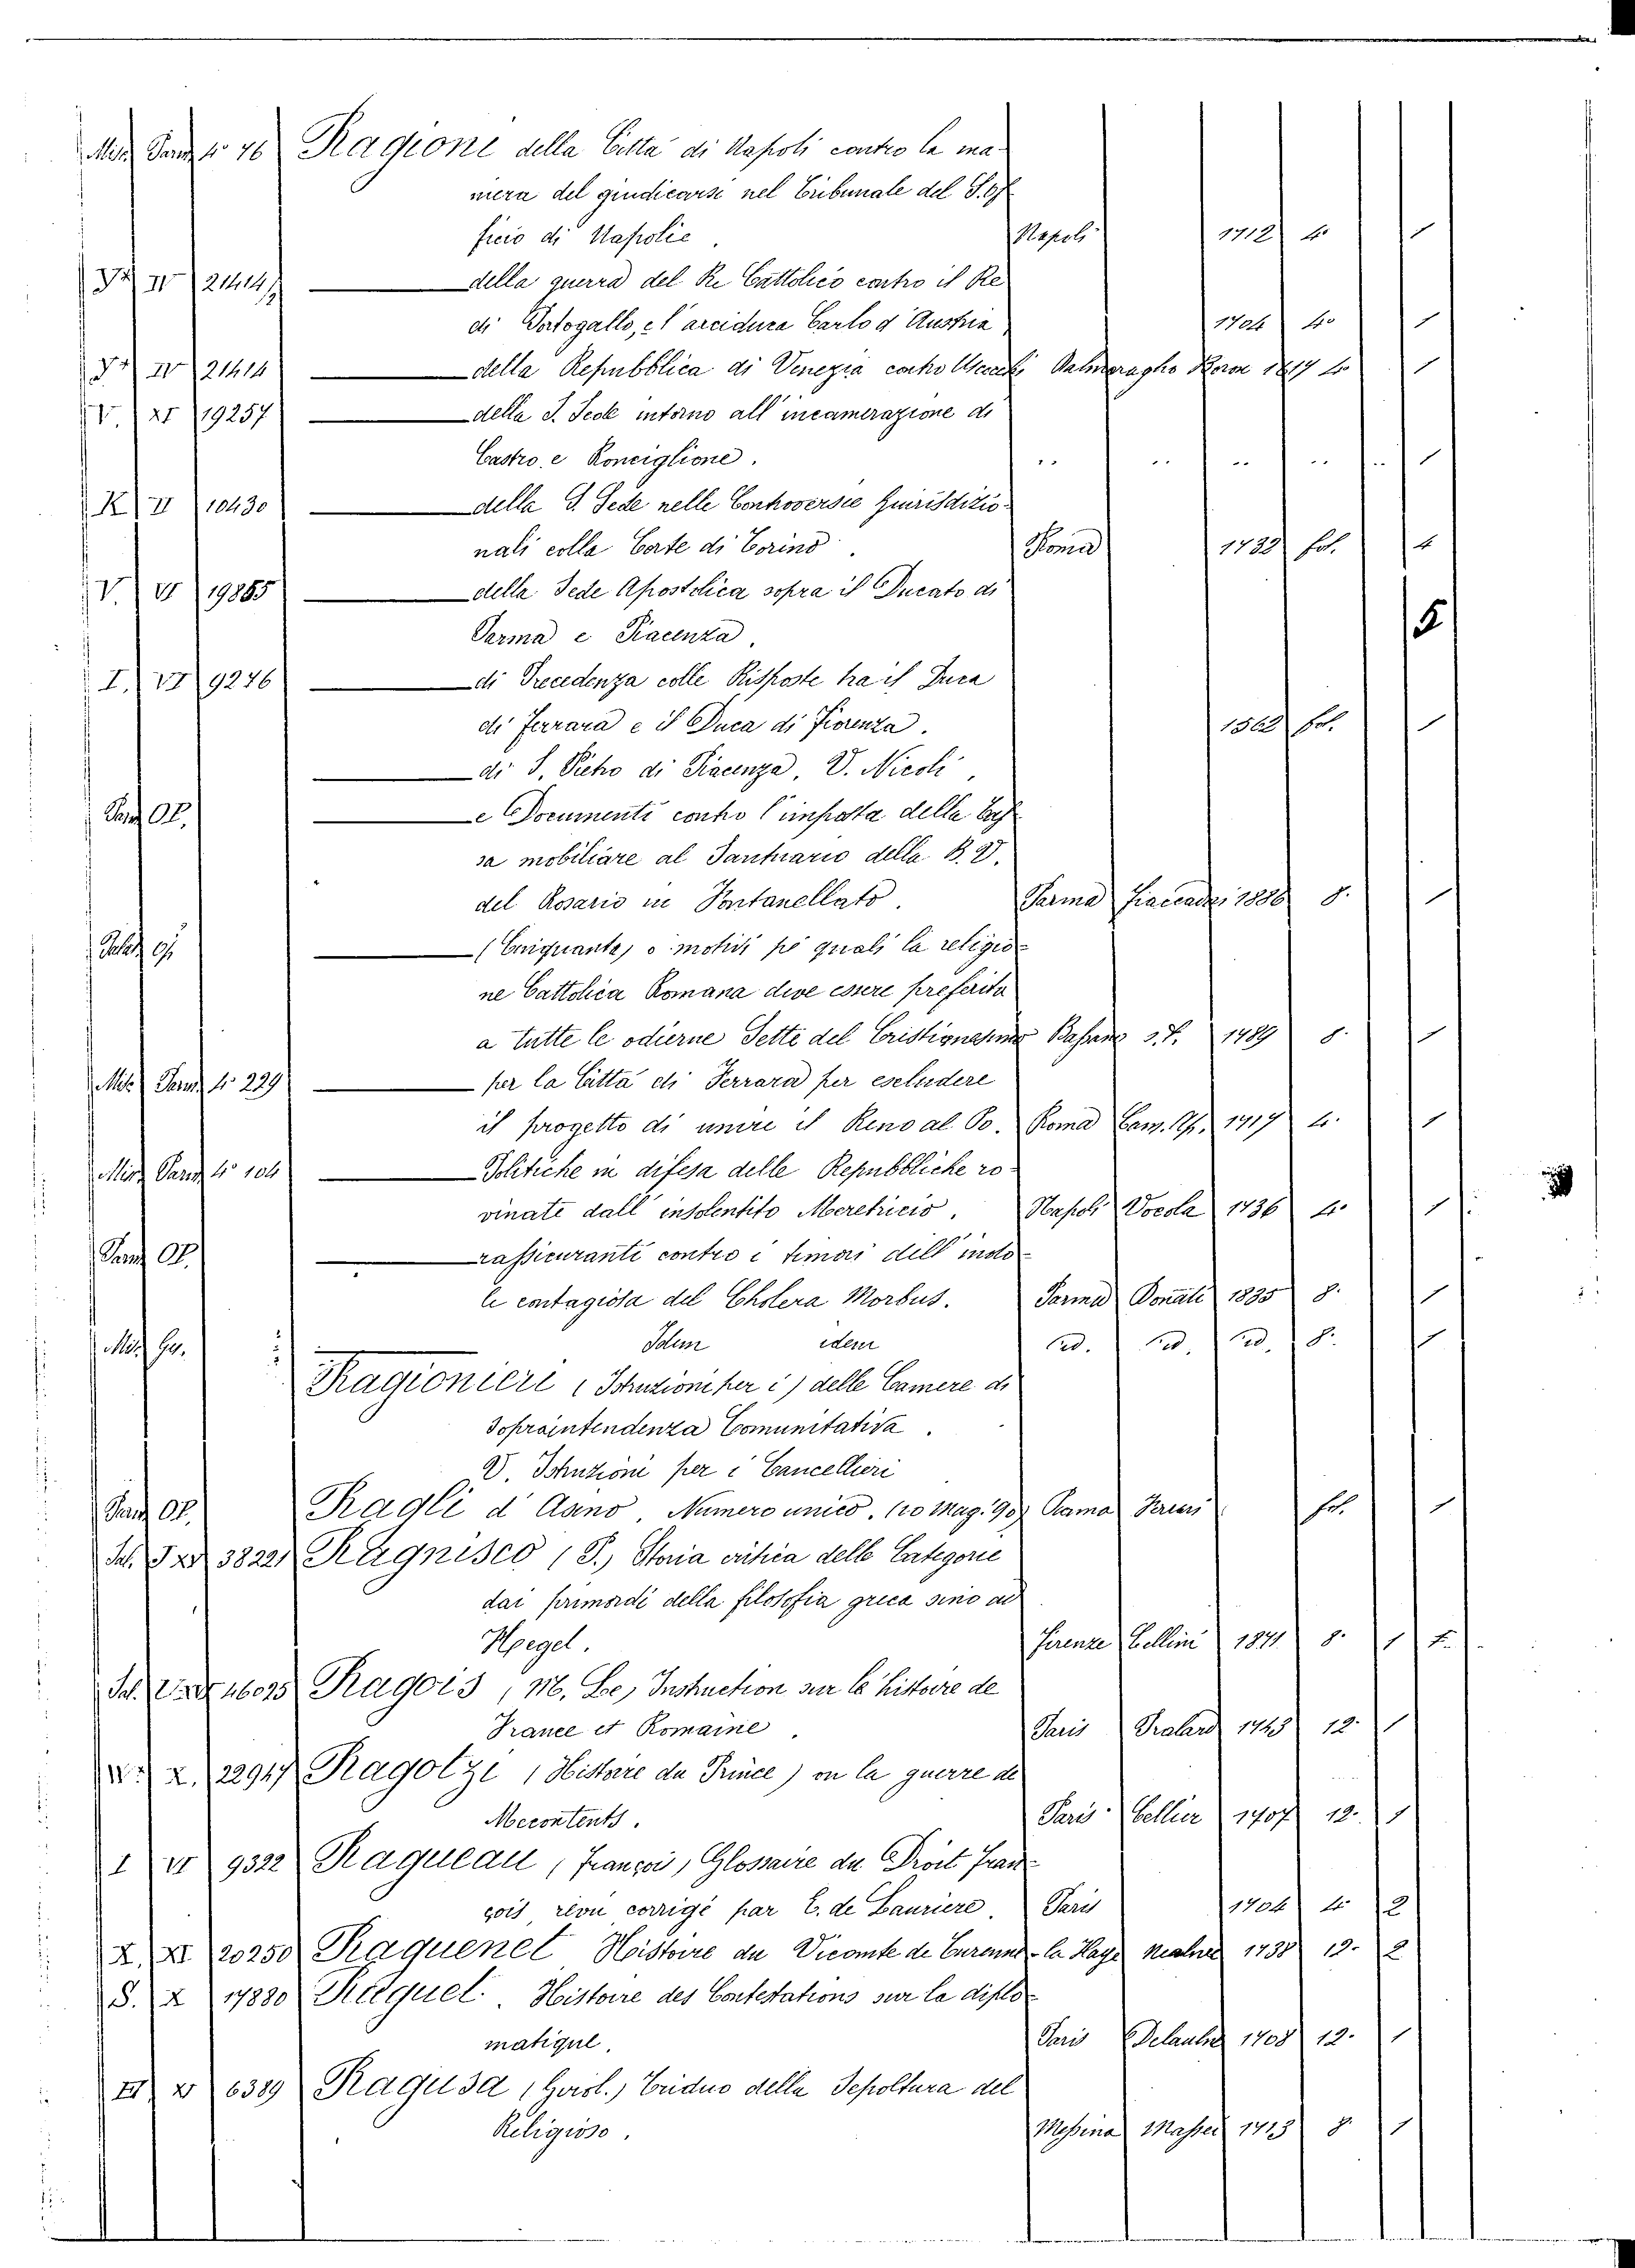 Misc. Parm. 4° 76 Ragioni della Città di Napoli contro la ma-
niera del giudicarsi nel Tribunale del S. Of
ficio di Napolie. Napoli 1712 4° 1
IV 21414 della guerra del Re Cattolico contro il Re
di Portogallo, e l'arciduca Carlo d'Austria 1704 4° 1
IV 21414 della Repubblica di Venezia contro Uscochi Dalmeragho 1617 4° 1
V. XI 19257 della S. Sede intorno all'incamerazione di
Castro e Ronciglione. .. .. .. .. .. 1
K II 10430 della S. Sede nelle Controversie Giurisdizio-
nali colla Corte di Torino. Roma 1732 fol. 4
V. VI 19865 della Sede Apostolica sopra il Ducato di
Parma e Piacenza. 5
I. VI 9276 di Precedenza colle Risposte tra il Duca
di Ferrara e il Duca di Fiorenza. 1562 fol. 1
di S. Pietro di Piacenza, V. Nicoli,
Parm. OP. e Documenti contro l'imposta della tas
sa mobiliare al Santuario della B. V.
del Rosario in Fontanellato. Parma Fiaccadori 1886 8. 1
Palat. (Cinquanta) o motivi pe' quali la religio-
ne Cattolica Romana deve essere preferita
a tutte le odierne Sette del Cristianesimo Bassano s.t. 1789 8. 1
Misc. Parm. 4° 229 per la Città di Ferrara per escludere
il progetto di unire il Reno al Po. Roma Cam. Ap. 1717 4. 1
Misc. Parm. 4° 104 Politiche in difesa delle Repubbliche ro-
vinate dall'insolentito Meretricio. Napoli Vocola 1736 4° 1
Parm. OP. rassicuranti contro i timori dell'indo-
le contagiosa del Cholera Morbus. Parma Donati 1835 8. 1
Misc. Idem idem id. id. id. 8. 1
Ragionieri (Istruzioni per i) delle Camere di
Sopraintendenza Comunitativa.
V. Istruzioni per i Cancellieri
Parm. OP. Ragli d'Asino, Numero unico, (10 Mag. 90) Parma Ferrari fol. 1
Sal. 38221 Ragnisco (P.) Storia critica delle Categorie
dai primordi della filosofia greca sino ad
Hegel. Firenze Cellini 1871 8. 1
Sal. 46025 Ragois, (M. Le) Instruction sur le histoire de
France et Romaine. Paris Pralard 1743 12. 1
X. 22947 Ragotzi (Histoire du Prince) ou la guerre de
Mecontents. Paris Cellier 1707 12. 1
I VI 9322 Ragueau (François) Glossaire du Droit Fran-
çois, revu corrigé par E. de Lauriere. Paris 1704 4° 2
X. XI 20250 Raguenet Histoire du Vicomte de Turenne la Haye Neaulme 1738 12. 2
S. X 17880 Raguet. Histoire des Contestations sur la diplo-
matique. Paris Delaulne 1708 12. 1
6389 Ragusa (Girol.) Triduo della Sepoltura del
Religioso. Messina Maffei 1713 8. 1